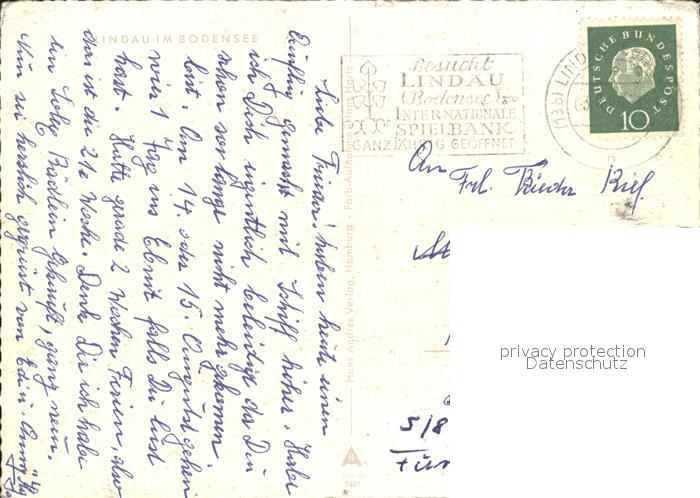 LINDAU IM BODENSEE
Liebe Frieda! haben heut einen
Ausflug gemacht mit Schiff hieher. Habe
ich Dich eigentlich beleidigt das Du
schon so lange nicht mehr gekommen
bist. Am 14. oder 15. August gehen
wir 1 Tag ins Ebnit falls Du Lust
hast. Hatte grade 2 Wochen Ferien, also
das ist die 2te Woche. Denk Dir ich habe
ein Rädlein gekauft, ganz neu.
Nun sei herzlich gegrüsst von
Hans Andres Verlag, Hamburg
Besucht
LINDAU
(Bodensee)
INTERNATIONALE
SPIELBANK
GANZJÄHRIG GEÖFFNET
(13b) LINDAU
DEUTSCHE BUNDESPOST
10
An
Frl. Frieda
5/8
privacy protection
Datenschutz